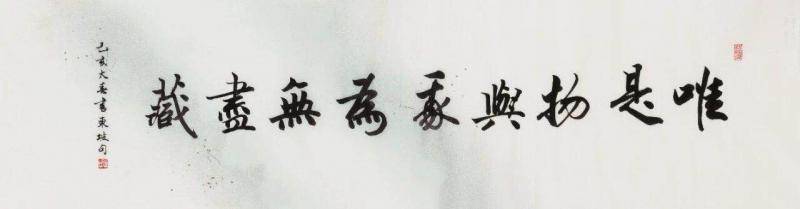 唯是物與我為無盡藏
己亥大書東坡句